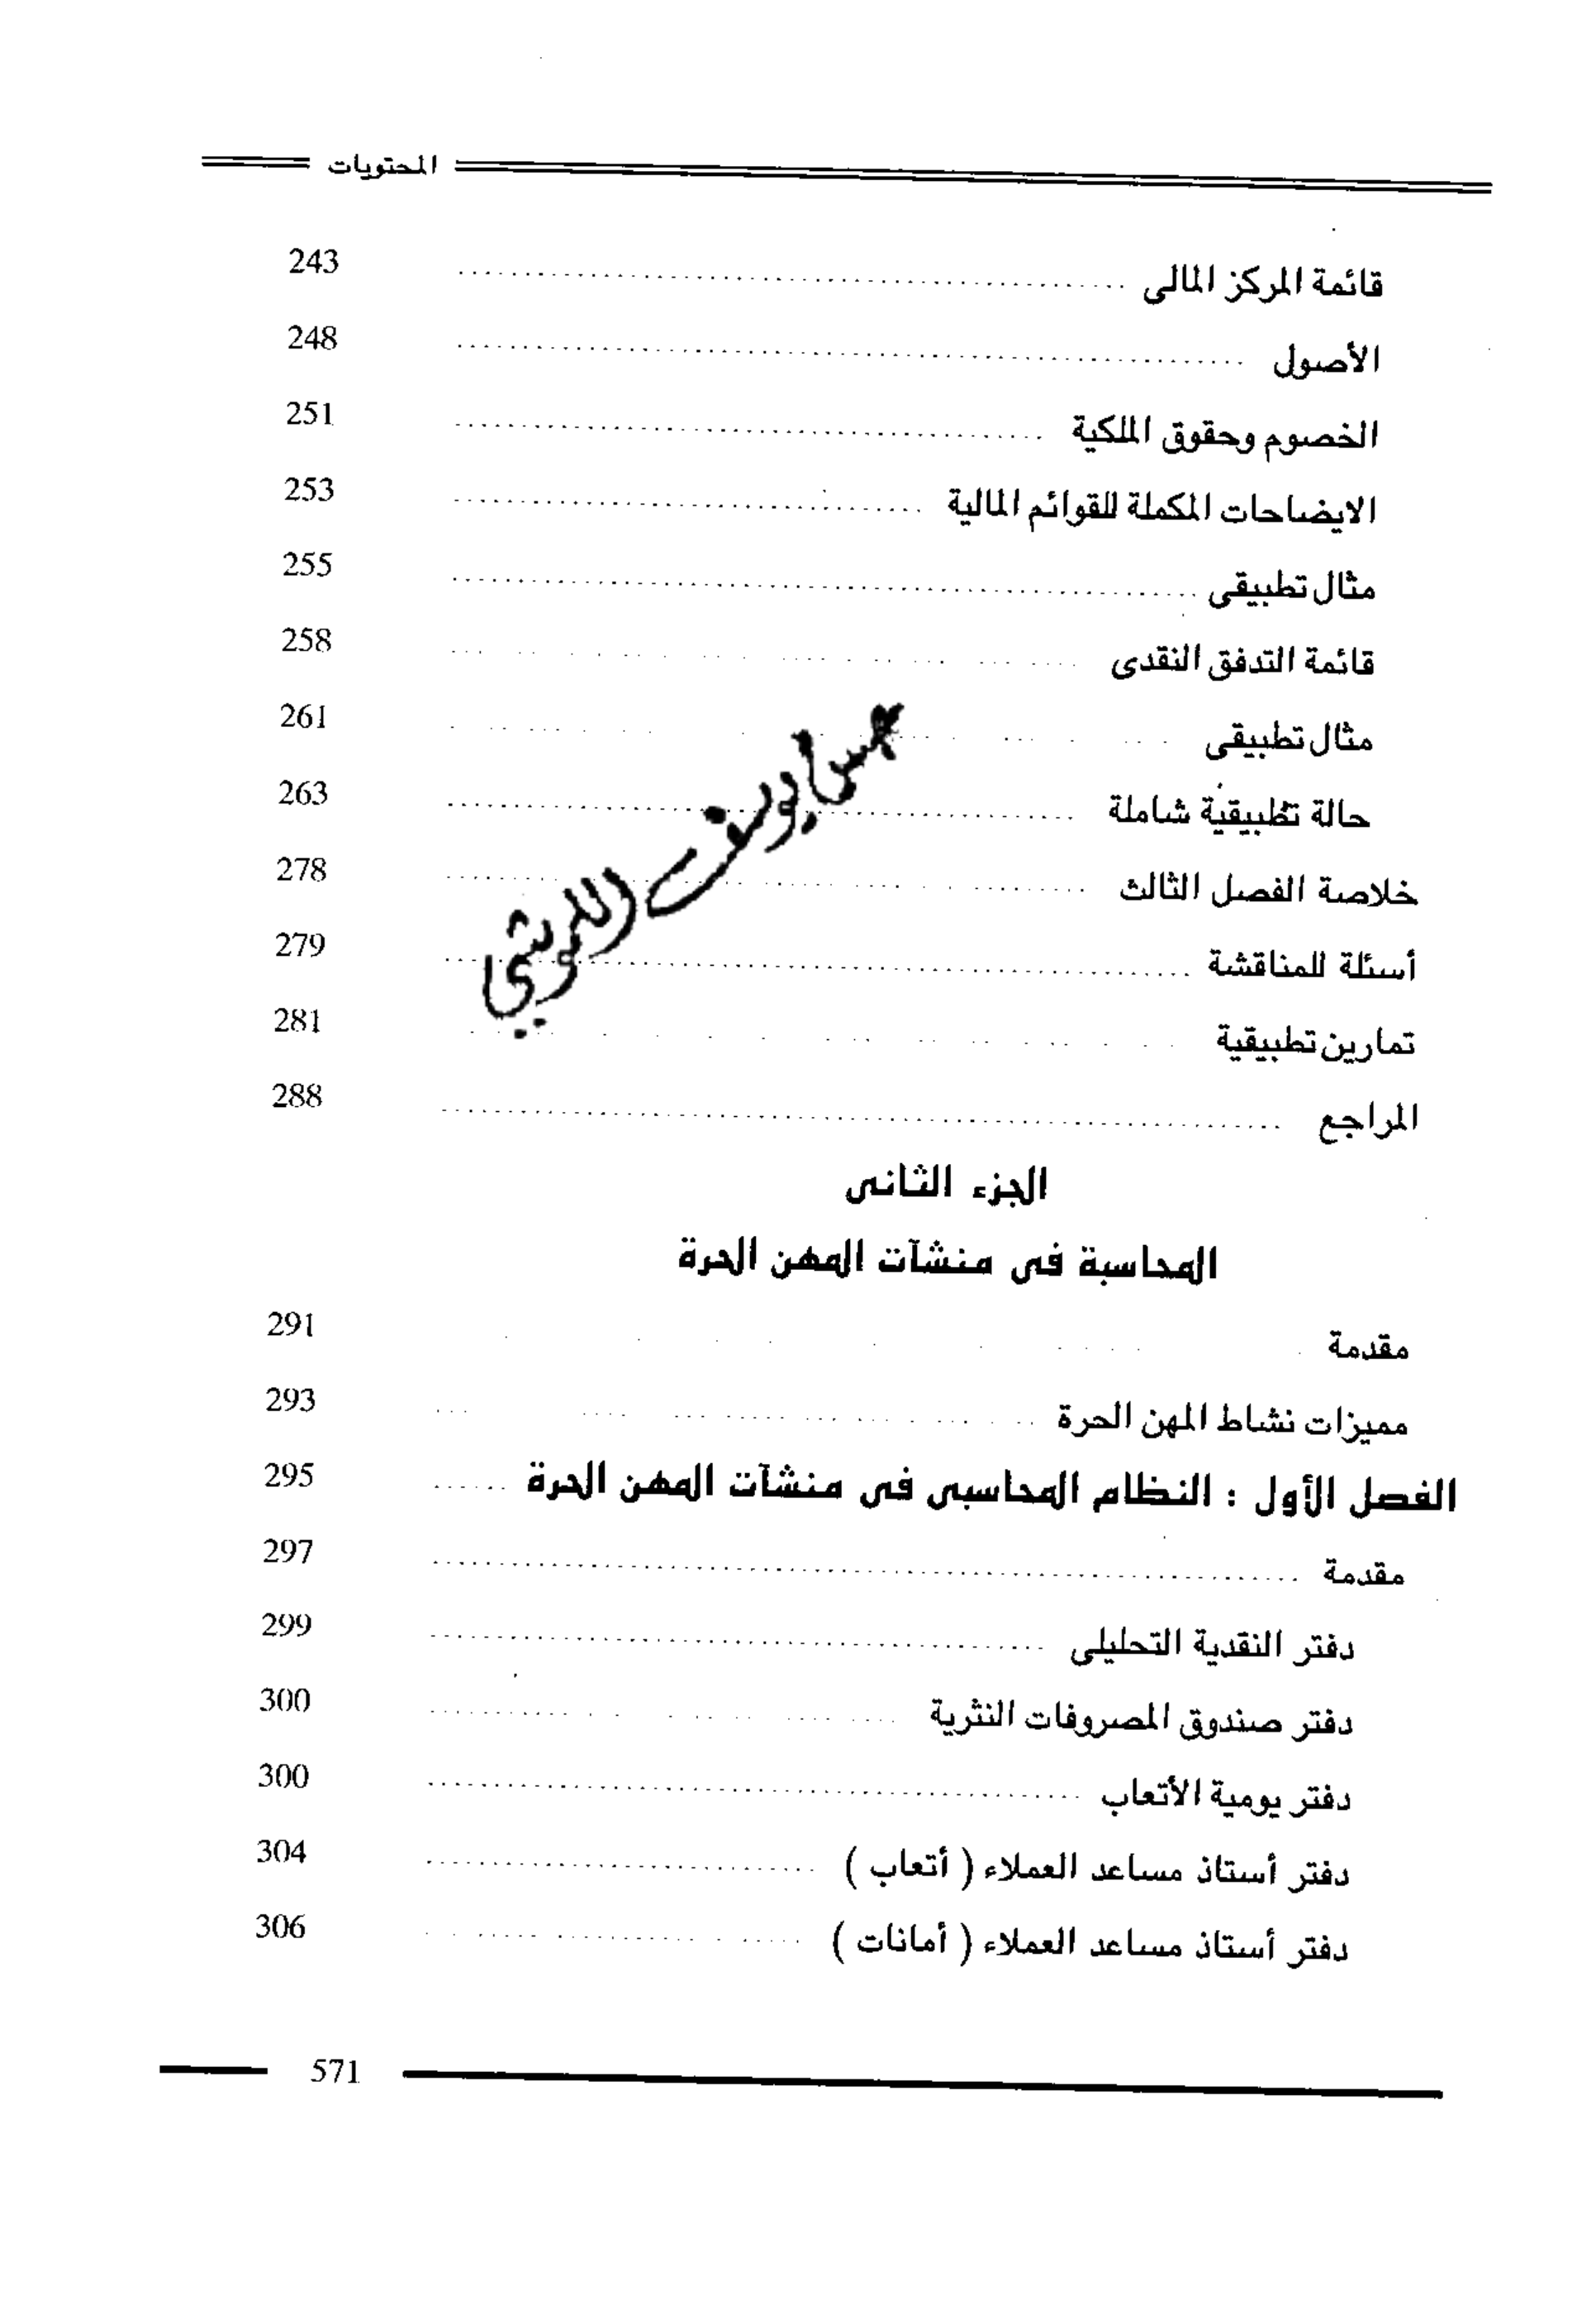 المحتويات
قائمة المركز المالى ........ 243
الأصول ........ 248
الخصوم وحقوق الملكية ........ 251
الايضاحات المكملة للقوائم المالية ........ 253
مثال تطبيقى ........ 255
قائمة التدفق النقدى ........ 258
مثال تطبيقى ........ 261
حالة تطبيقية شاملة ........ 263
خلاصة الفصل الثالث ........ 278
أسئلة للمناقشة ........ 279
تمارين تطبيقية ........ 281
المراجع ........ 288
الجزء الثانى
المحاسبة فى منشآت المهن الحرة
مقدمة ........ 291
مميزات نشاط المهن الحرة ........ 293
الفصل الأول : النظام المحاسبى فى منشآت المهن الحرة ...... 295
مقدمة ........ 297
دفتر النقدية التحليلى ........ 299
دفتر صندوق المصروفات النثرية ........ 300
دفتر يومية الأتعاب ........ 300
دفتر أستاذ مساعد العملاء ( أتعاب ) ........ 304
دفتر أستاذ مساعد العملاء ( أمانات ) ........ 306
571